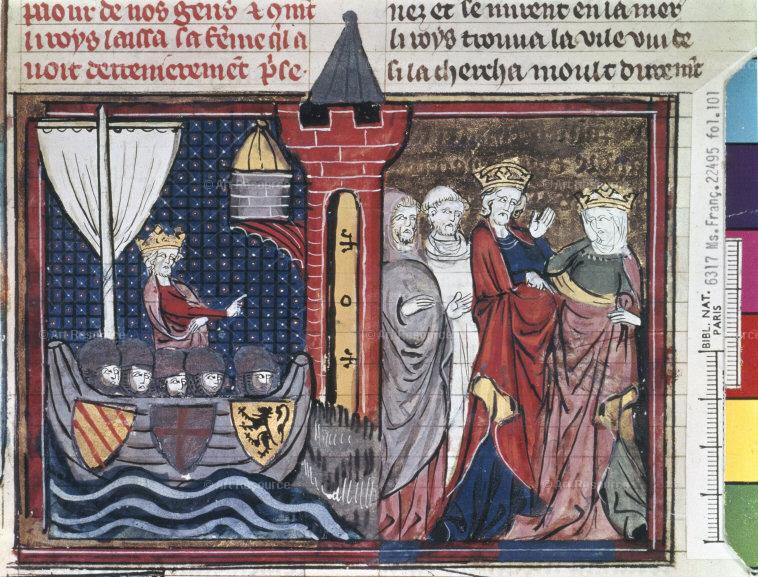 paour de nos gens & q̃mt
li roys laissa sa feme q̃l a
uoit derrenierement p̃se.
nez et se mirent en la mer
li roys trouua la vile vuide
si la chercha moult durem̃t
BIBL. NAT.
PARIS
6317 Ms. Franç. 22495 fol. 101
© Art Resource